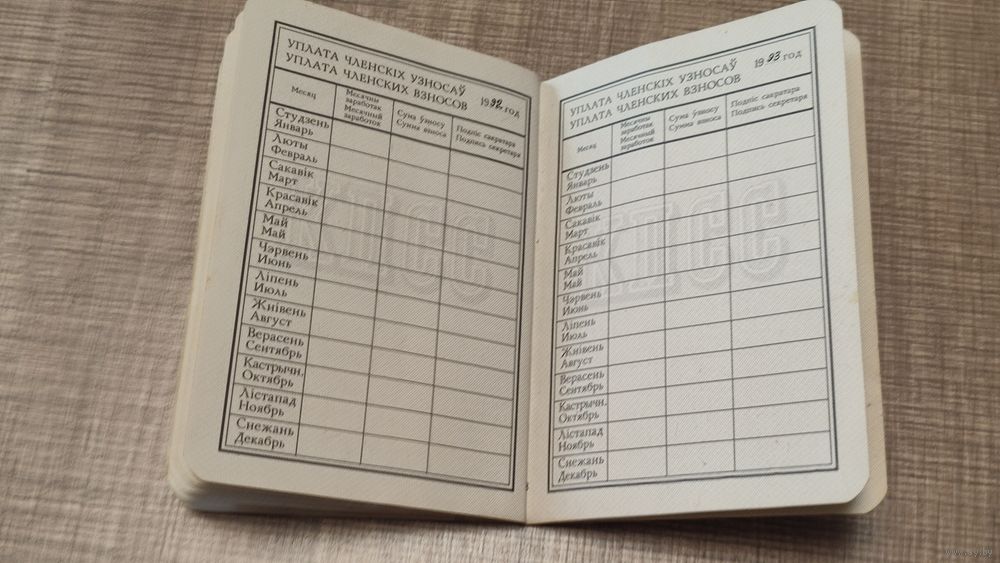 УПЛАТА ЧЛЕНСКІХ УЗНОСАЎ
УПЛАТА ЧЛЕНСКИХ ВЗНОСОВ
1992 год
Месяц
Месячны
заработак
Месячный
заработок
Сума ўзносу
Сумма взноса
Подпіс сакратара
Подпись секретаря
Студзень
Январь
Люты
Февраль
Сакавік
Март
Красавік
Апрель
Май
Май
Чэрвень
Июнь
Ліпень
Июль
Жнівень
Август
Верасень
Сентябрь
Кастрычн.
Октябрь
Лістапад
Ноябрь
Снежань
Декабрь
КПСС
УПЛАТА ЧЛЕНСКІХ УЗНОСАЎ
УПЛАТА ЧЛЕНСКИХ ВЗНОСОВ
1993 год
Месяц
Месячны
заработак
Месячный
заработок
Сума ўзносу
Сумма взноса
Подпіс сакратара
Подпись секретаря
Студзень
Январь
Люты
Февраль
Сакавік
Март
Красавік
Апрель
Май
Май
Чэрвень
Июнь
Ліпень
Июль
Жнівень
Август
Верасень
Сентябрь
Кастрычн.
Октябрь
Лістапад
Ноябрь
Снежань
Декабрь
КПСС
www.ay.by